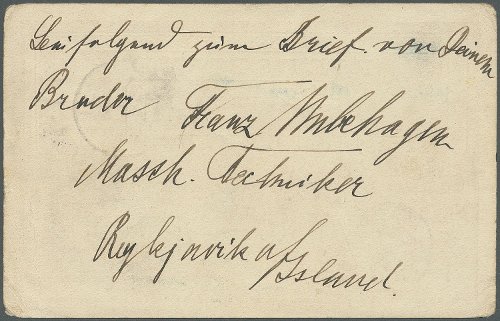 Beifolgend zum Brief von Deinem
Bruder Franz
Masch. Techniker
Reykjavik a/Island.